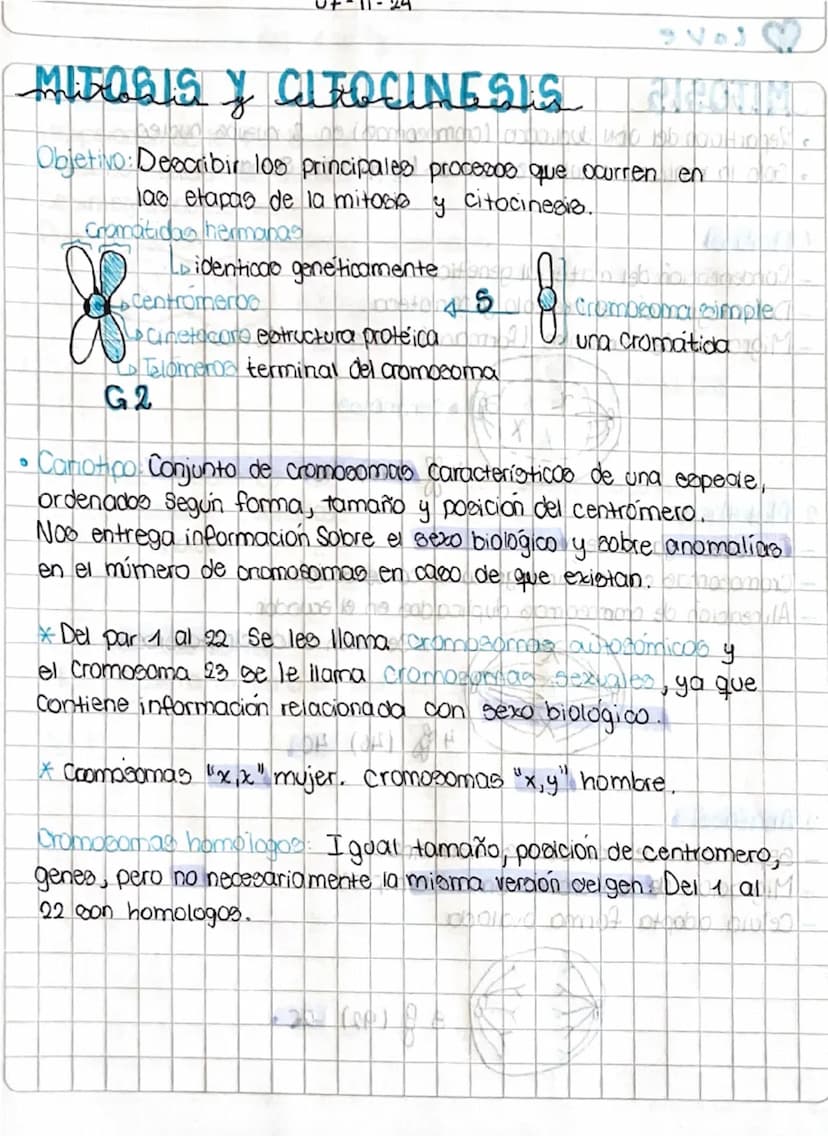 07-11-24
MITOSIS Y CITOCINESIS
mitosis y citocinesis
Objetivo: Describir los principales procesos que ocurren en
las etapas de la mitosis y citocinesis.
Cromátidas hermanas
identicas genéticamente
centromeros
S
Cromosoma simple
cinetocoro estructura protéica
una cromátida
Telómeros terminal del cromosoma
G2
• Cariotipo: Conjunto de cromosomas característicos de una especie,
ordenados según forma, tamaño y posición del centrómero.
Nos entrega información sobre el sexo biológico y sobre anomalías
en el número de cromosomas en caso de que existan.
* Del par 1 al 22 se les llama cromosomas autosómicos y
el cromosoma 23 se le llama cromosomas sexuales, ya que
contiene información relacionada con sexo biológico.
* Cromosomas "x,x" mujer. cromosomas "x,y" hombre.
Cromosomas homólogos: Igual tamaño, posición de centromero,
genes, pero no necesariamente la misma versión del gen. Del 1 al
22 son homologos.